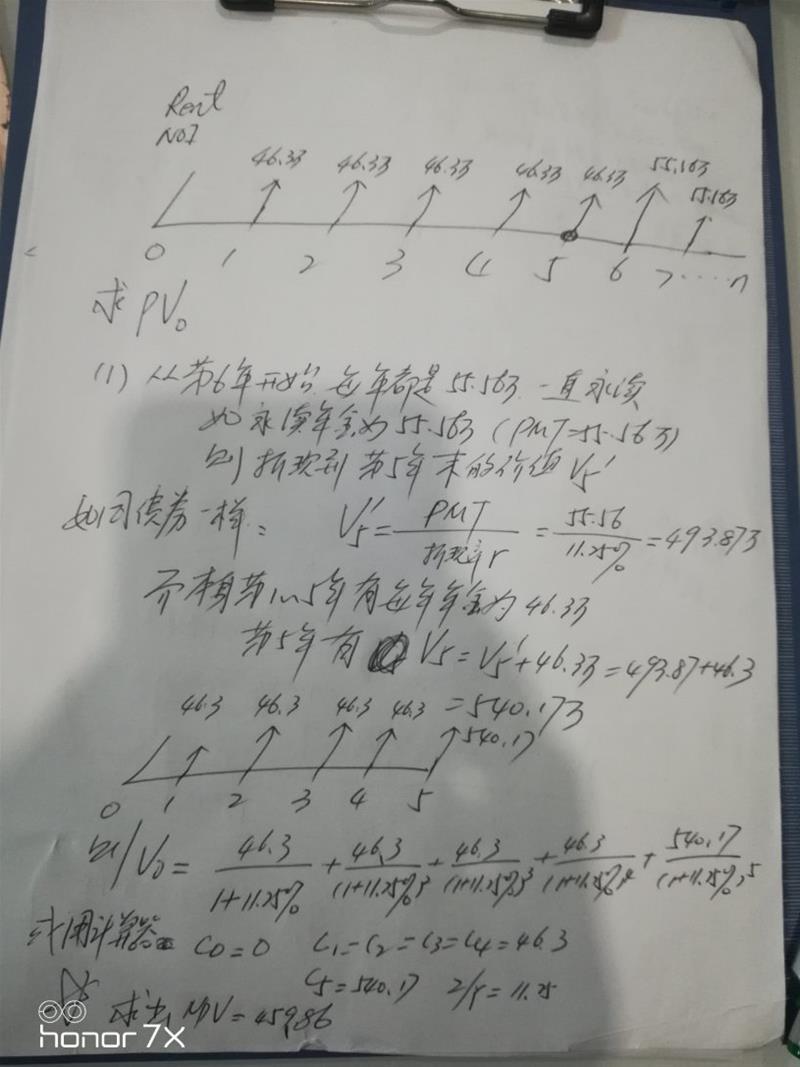 Rent
NOI
46.3万 46.3万 46.3万 46.3万 46.3万 55.56万 55.56万
0 1 2 3 4 5 6 7 ····n
求 PV₀
(1) 从第6年开始 每年都是 55.56万 一直永续
如永续年金为 55.56万 (PMT=55.56万)
则折现到第5年末的价值 V₅'
如同债券一样: V₅' = PMT / 折现率r = 55.56 / 11.25% = 493.87万
第1~5年有每年年金为 46.3万
第5年有 V₅ = V₅' + 46.3万 = 493.87+46.3
= 540.17万
46.3 46.3 46.3 46.3 540.17
0 1 2 3 4 5
则 V₀ = 46.3 / 1+11.25% + 46.3 / (1+11.25%)² + 46.3 / (1+11.25%)³ + 46.3 / (1+11.25%)⁴ + 540.17 / (1+11.25%)⁵
用计算器 C0=0 C1=C2=C3=C4=46.3
C5=540.17 I/Y=11.25
求出 NPV=459.86
honor 7X